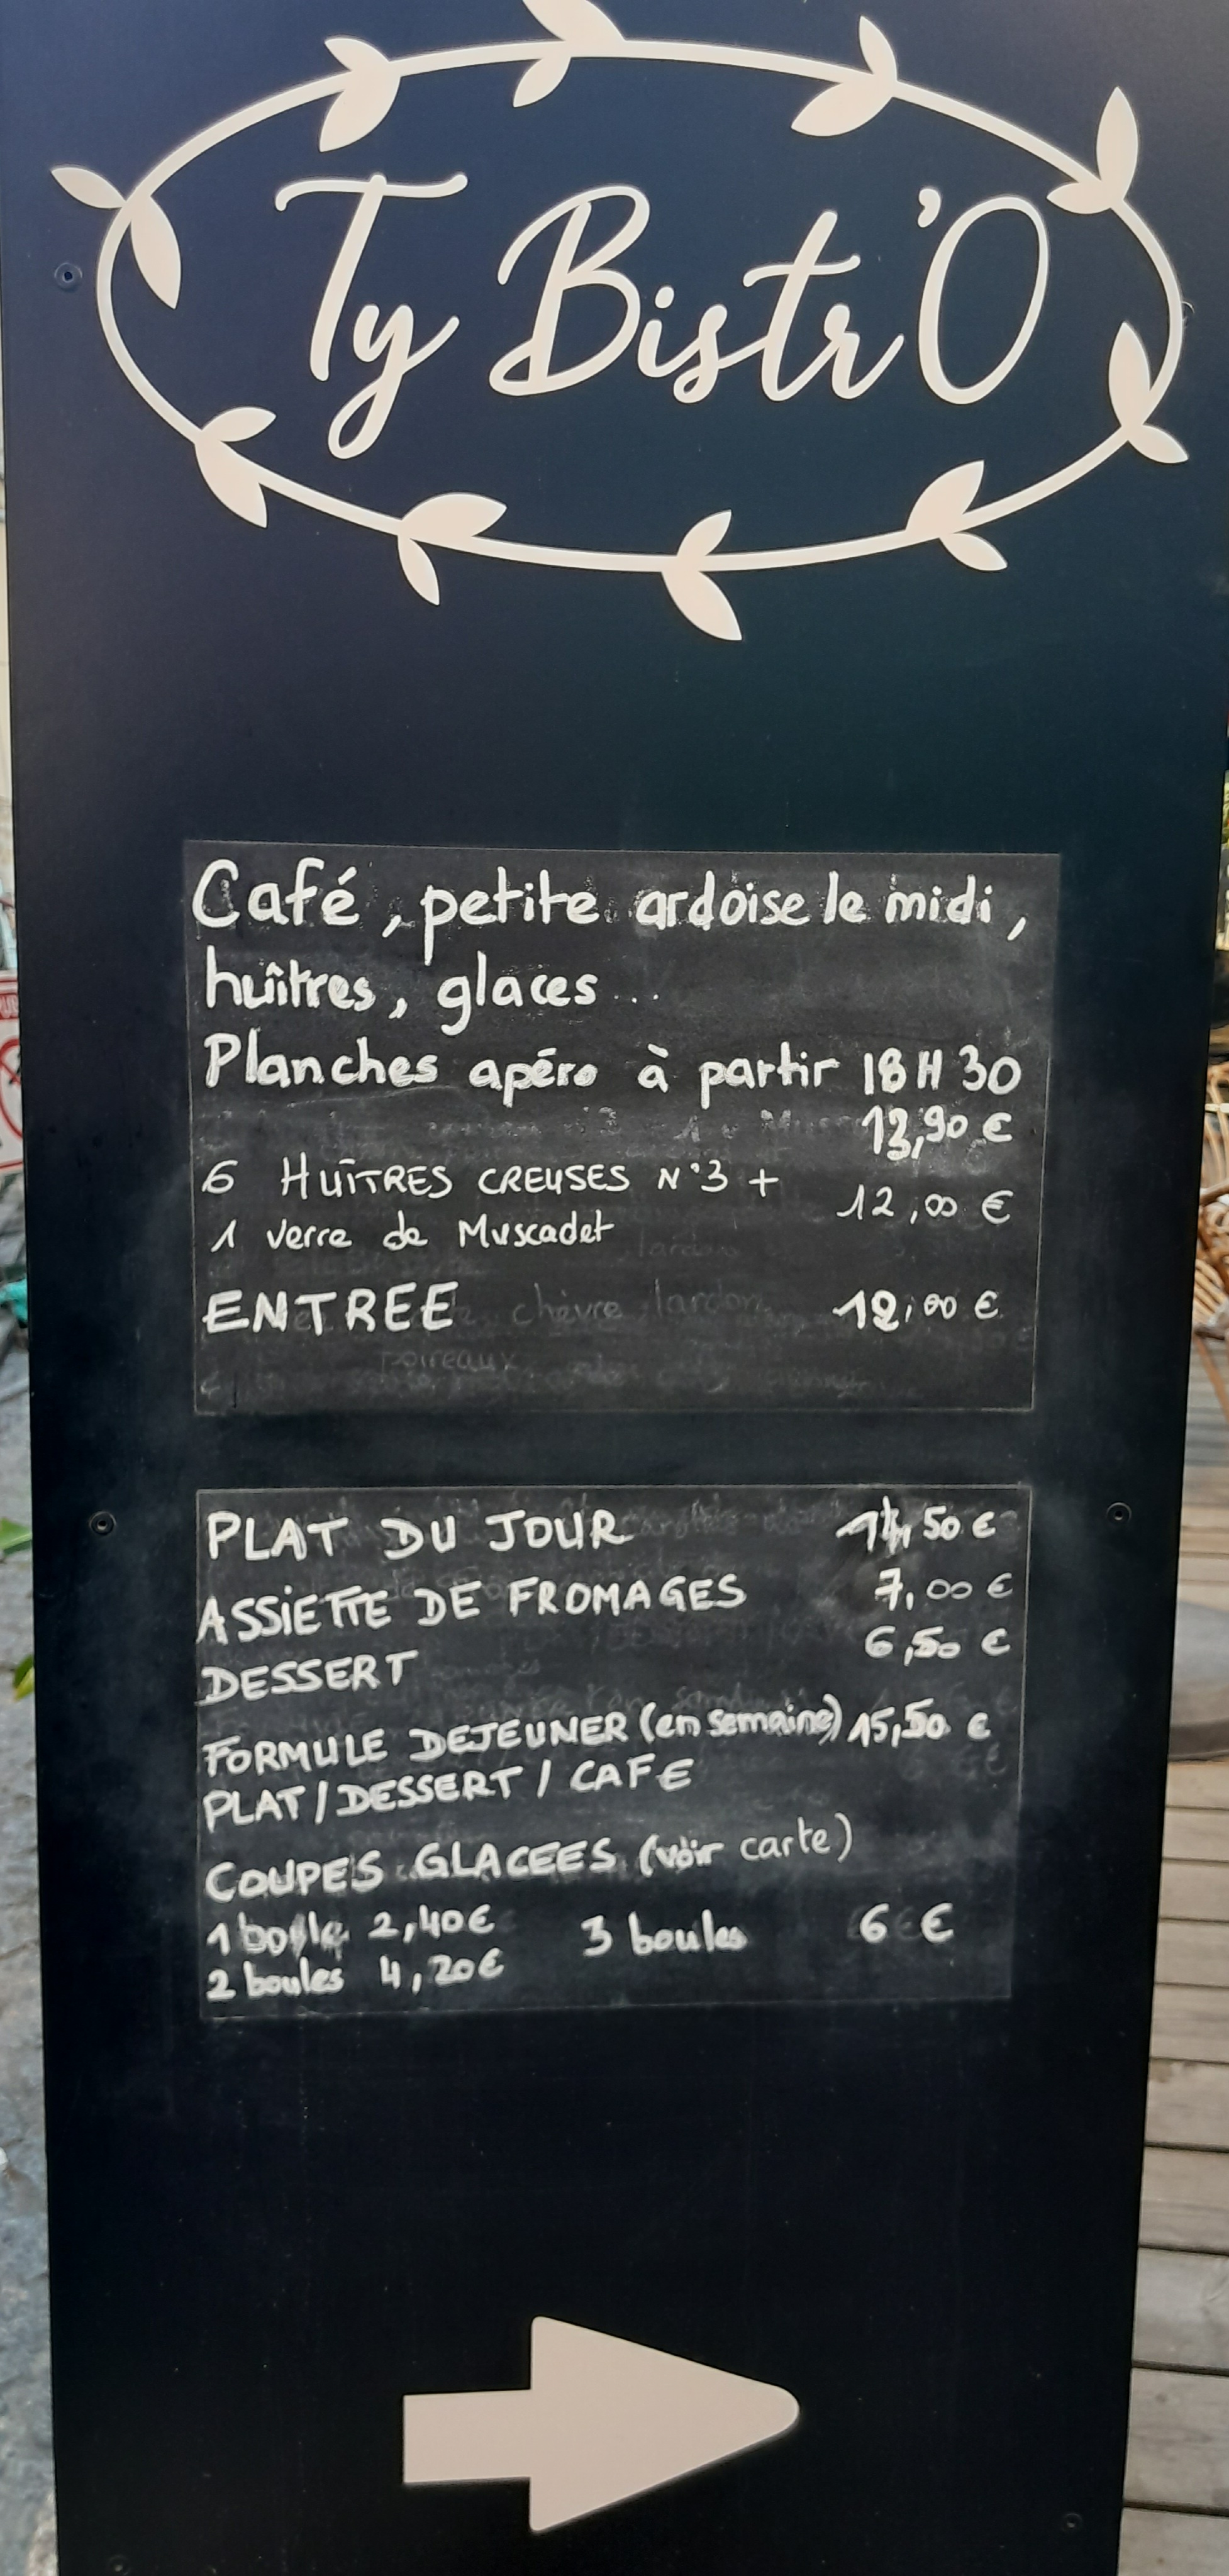 Ty Bistr'O
Café, petite ardoise le midi,
huîtres, glaces ...
Planches apéro à partir 18H30
13,90 €
6 HUÎTRES CREUSES N°3 +
12,00 €
1 verre de Muscadet
ENTREE 12,00 €
PLAT DU JOUR 14,50 €
ASSiETTE DE FROMAGES 7,00 €
DESSERT 6,50 €
FORMULE DEJEUNER (en semaine) 15,50 €
PLAT/DESSERT/CAFE
COUPES GLACEES (voir carte)
1 boule 2,40€ 3 boules 6 €
2 boules 4,20€